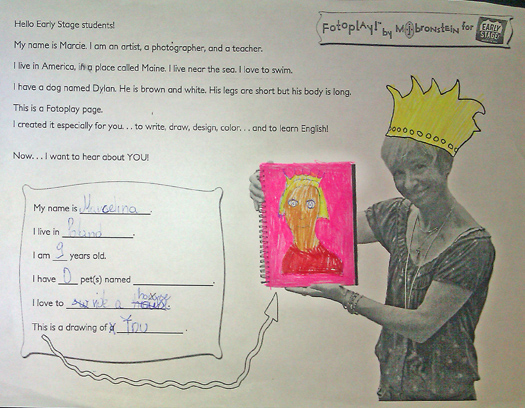 Fotoplay!™ by M. J. bronstein for EARLY STAGE!
Hello Early Stage students!
My name is Marcie. I am an artist, a photographer, and a teacher.
I live in America, in a place called Maine. I live near the sea. I love to swim.
I have a dog named Dylan. He is brown and white. His legs are short but his body is long.
This is a Fotoplay page.
I created it especially for you. . . to write, draw, design, color. . . and to learn English!
Now. . . I want to hear about YOU!
My name is Marcelina.
I live in Poland.
I am 9 years old.
I have 0 pet(s) named
I love to a
This is a drawing of You.